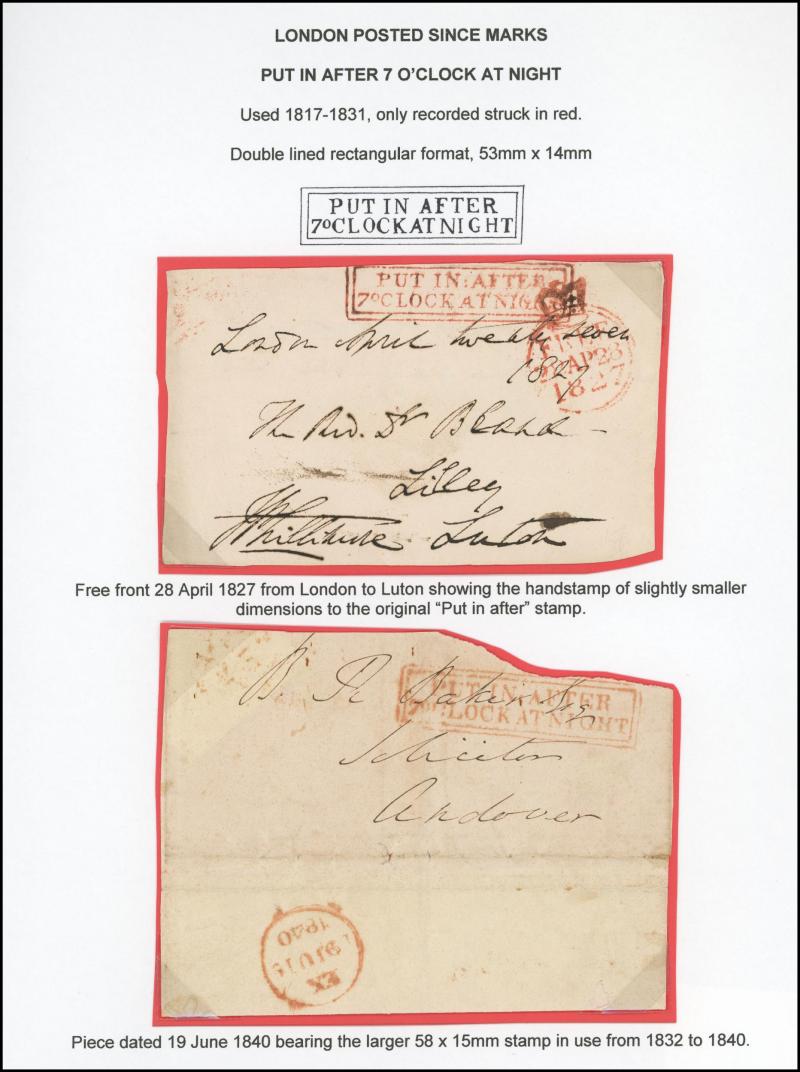 LONDON POSTED SINCE MARKS
PUT IN AFTER 7 O'CLOCK AT NIGHT
Used 1817-1831, only recorded struck in red.
Double lined rectangular format, 53mm x 14mm
PUT IN AFTER
7oCLOCKATNIGHT
PUT IN AFTER
7oCLOCKATNIGHT
London April twenty seven
1827
FREE
AP28
1827
The Rev. Dr Bland
Lilley
Luton
Free front 28 April 1827 from London to Luton showing the handstamp of slightly smaller
dimensions to the original “Put in after” stamp.
PUT IN AFTER
7oCLOCKATNIGHT
B. R Baker Esq
Solicitor
Andover
EX
19JU19
1840
Piece dated 19 June 1840 bearing the larger 58 x 15mm stamp in use from 1832 to 1840.